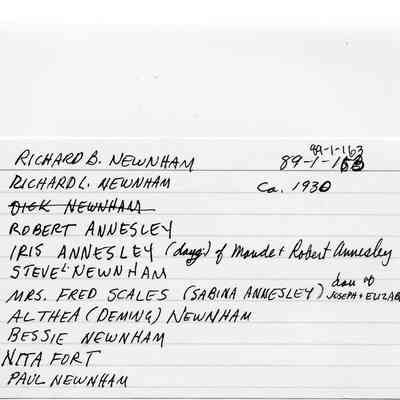 89-1-163
RICHARD B. NEWNHAM 89-1-163
RICHARD L. NEWNHAM Ca. 1930
DICK NEWNHAM
ROBERT ANNESLEY
IRIS ANNESLEY (daug.) of Maude + Robert Annesley
STEVE L. NEWNHAM
MRS. FRED SCALES (SABINA ANNESLEY) dau of JOSEPH + ELIZAB
ALTHEA (DEMING) NEWNHAM
BESSIE NEWNHAM
NITA FORT
PAUL NEWNHAM